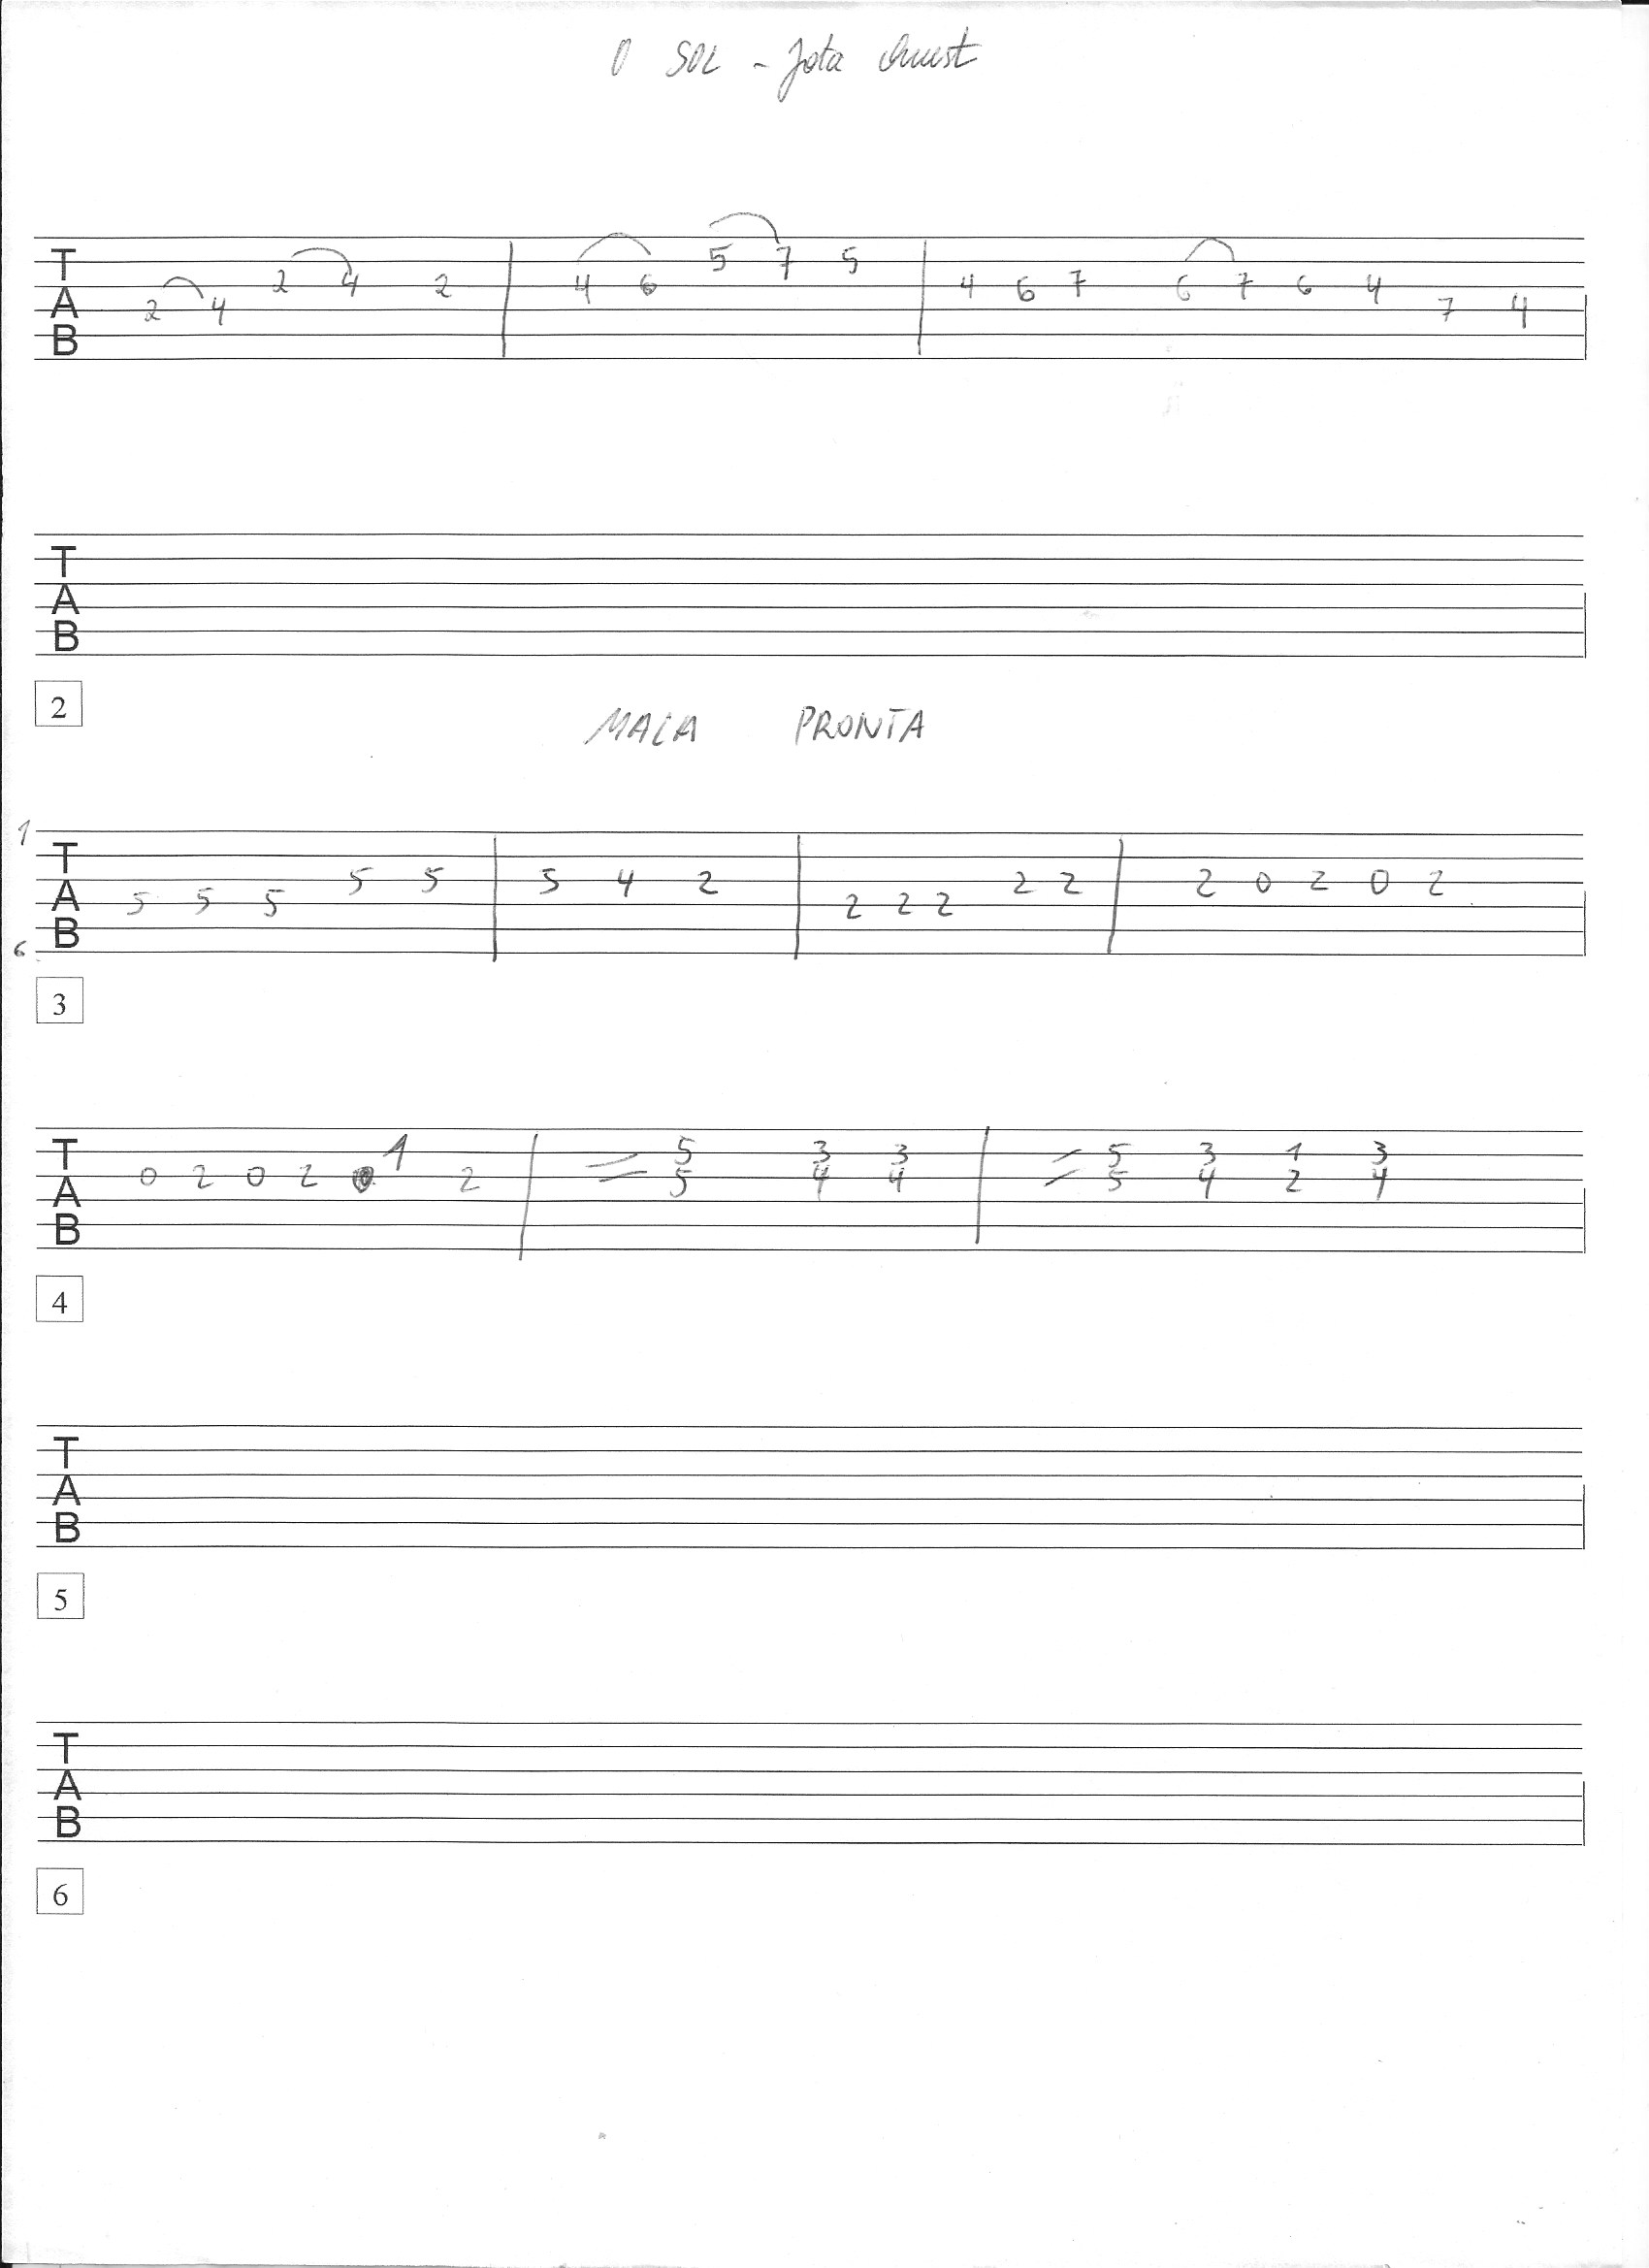 O SOL - Jota Quest
T
A
B
2 4 2 4 2 4 6 5 7 5 4 6 7 6 7 6 4 7 4
T
A
B
2
MALA PRONTA
1
T
A
B
6
5 5 5 5 5 5 4 2 2 2 2 2 2 2 0 2 0 2
3
T
A
B
1
0 2 0 2 2
5 3 3 5 3 1 3
5 4 4 5 4 2 4
4
T
A
B
5
T
A
B
6